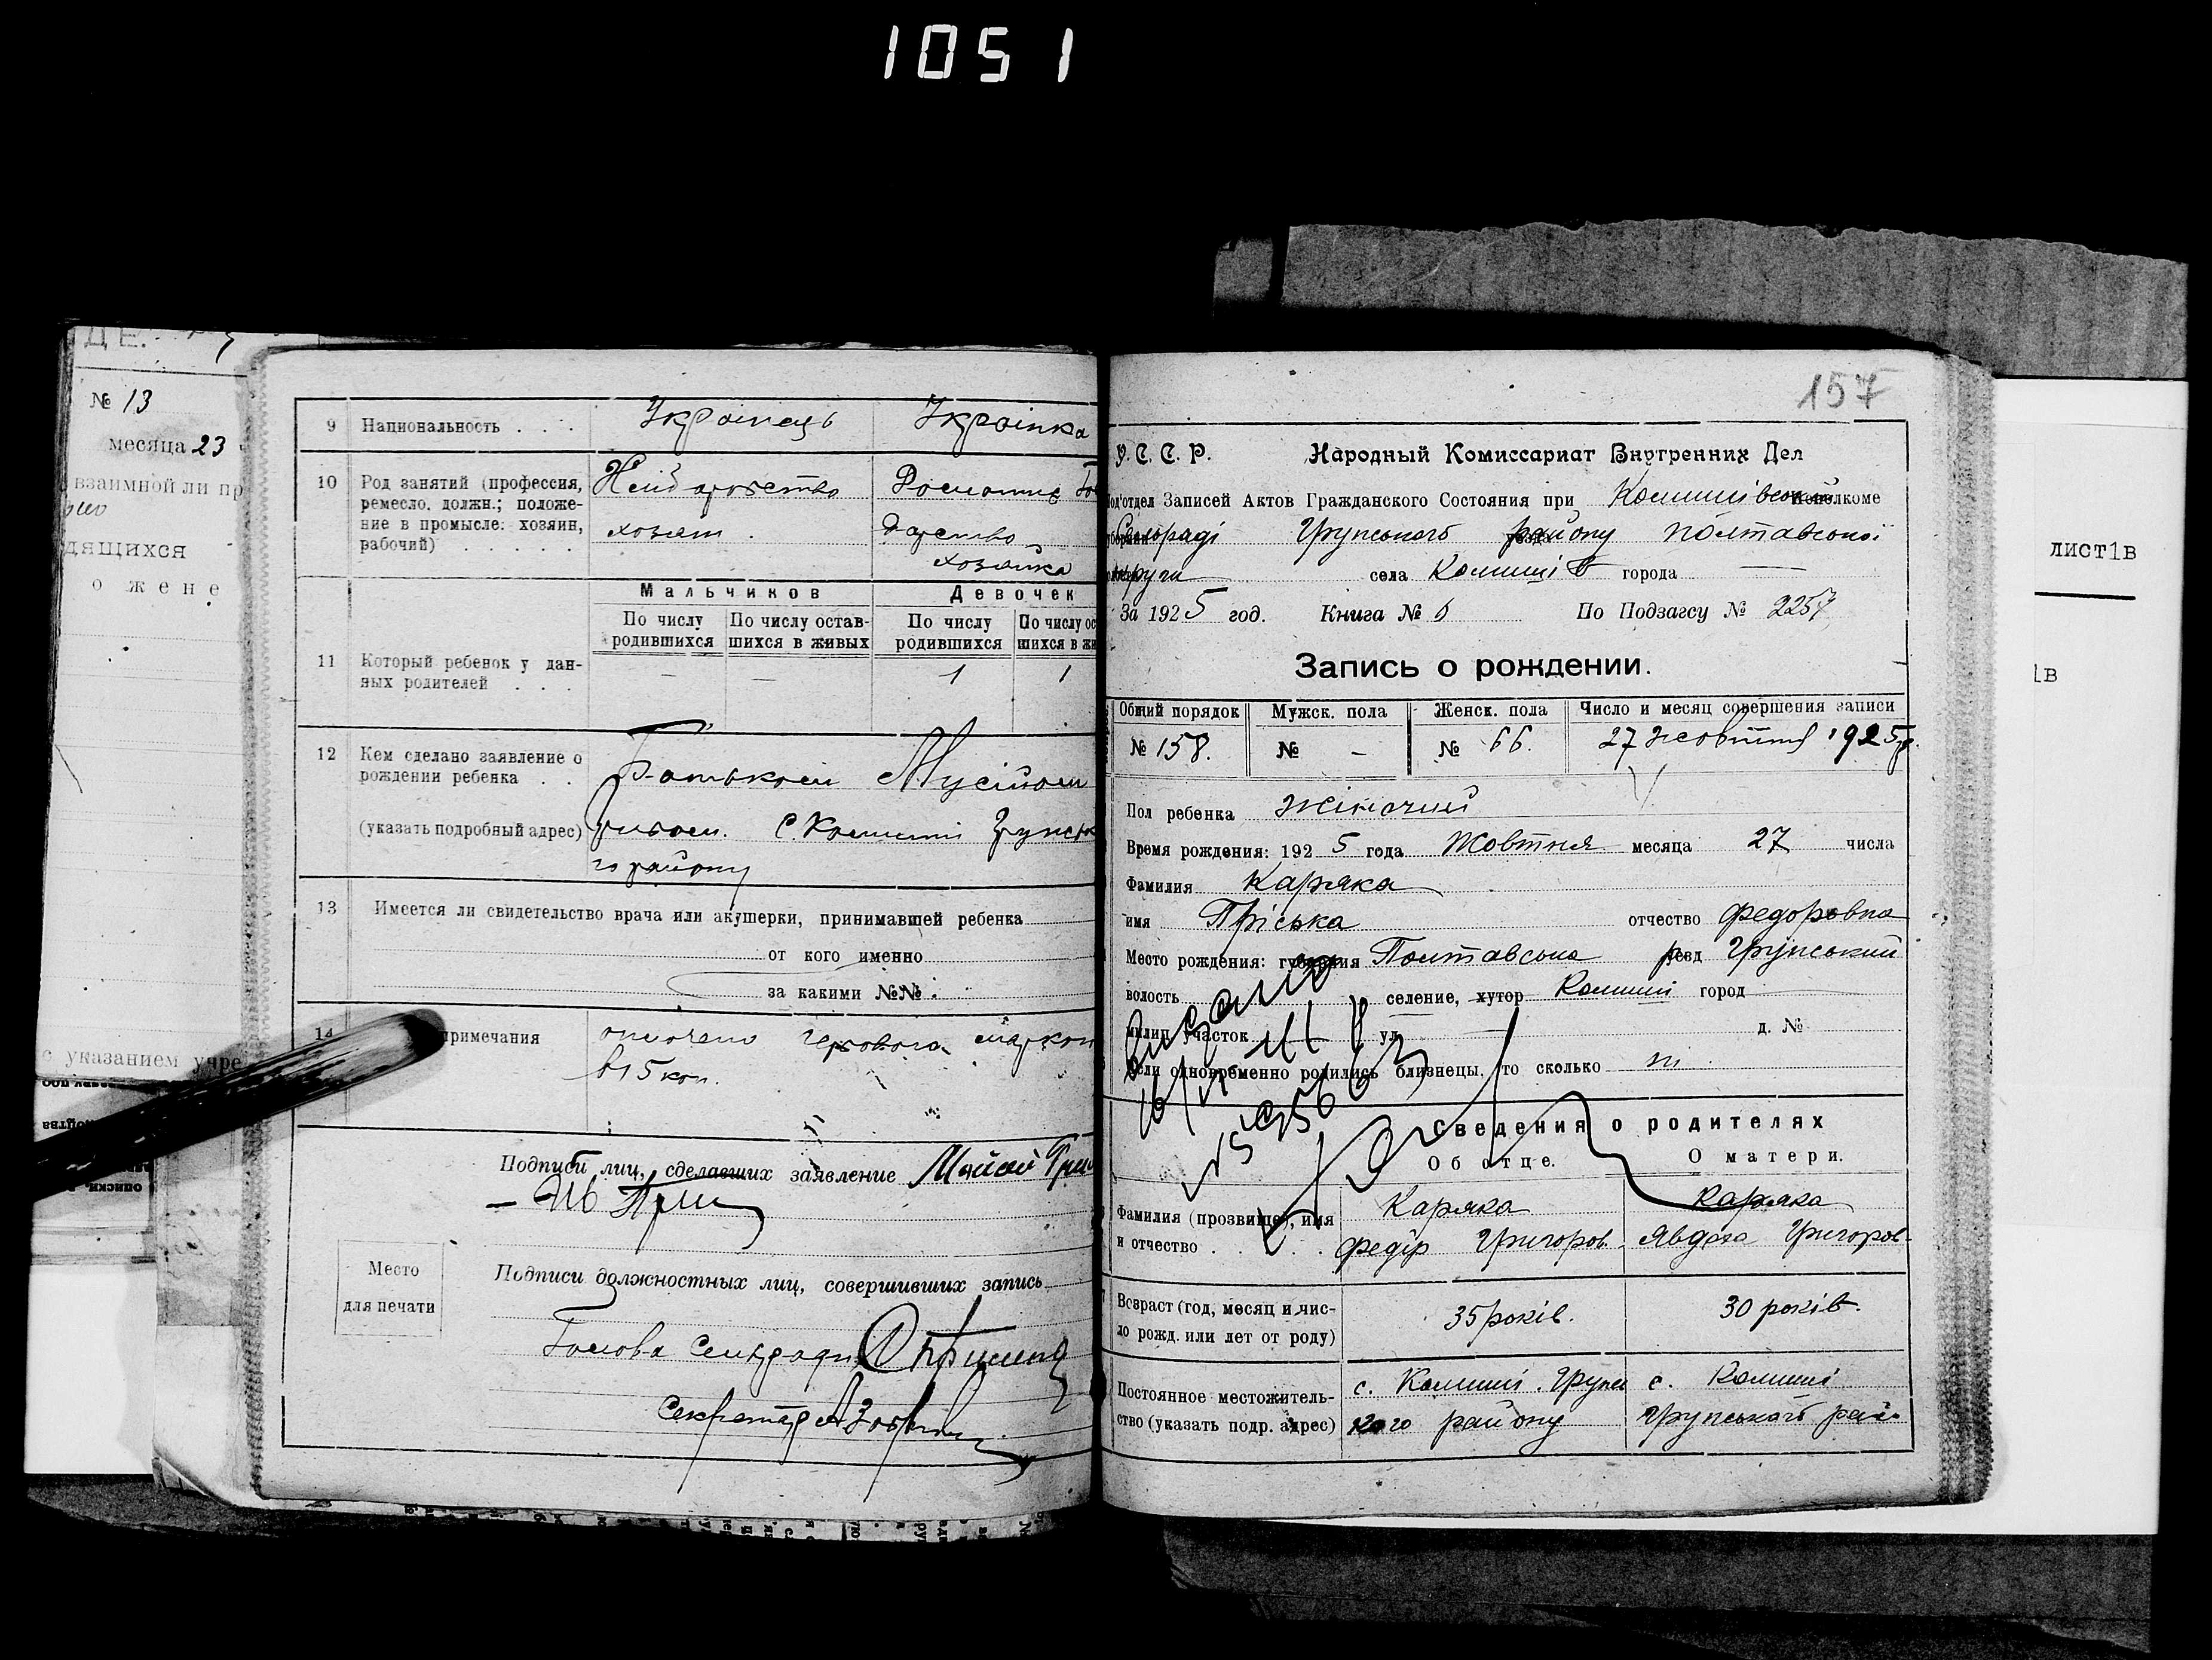 1051
ДЕ.
№ 13
месяца 23
взаимной ли пр
дящихся
о жене
с указанием учре
9 Национальность . . . Українець Українка
10 Род занятий (профессия, ремесло, должн.; положение в промысле: хозяин, рабочий) . . . . . .
хозяин. хозяйка
Мальчиков Девочек
По числу родившихся По числу оставшихся в живых По числу родившихся По числу ос шихся в жи
11 Который ребенок у данных родителей . . . — — 1 1
12 Кем сделано заявление о рождении ребенка . . Батьком Мусійом
(указать подробный адрес) с Комиші Грунсько
го району
13 Имеется ли свидетельство врача или акушерки, принимавшей ребенка
от кого именно
за какими №№
14 примечания оплочено маркою
в 15 коп.
Подписи лиц, сделавших заявление
Место
для печати
Подписи должностных лиц, совершивших запись
Голова Сельради
Секретар
157
У. С. С. Р. Народный Комиссариат Внутренних Дел
Подотдел Записей Актов Гражданского Состояния при Комишівській Исполкоме
Сельраді Грунського району Полтавської
округи села Комиші города —
За 1925 год. Книга № 6 По Подзагсу № 2257
Запись о рождении.
Общий порядок Мужск. пола Женск. пола Число и месяц совершения записи
№ 158. № - № 66. 27 жовтня 1925 р.
Пол ребенка жіночий
Время рождения: 1925 года Жовтня месяца 27 числа
Фамилия Каряка
имя Пріська отчество Федоровна
Место рождения: губерния Полтавська уезд Грунський
волость селение, хутор Комиші город
милиц. участок ул. д. №
Если одновременно родились близнецы, то сколько ні
Сведения о родителях
Об отце. О матери.
Фамилия (прозвище), имя Каряка Каряка
и отчество . . . . Федір Григоров. Явдоха Григоров-
Возраст (год, месяц и число рожд. или лет от роду) 35 років. 30 років.
Постоянное местожитель- с. Комиші Грунсь с. Комиші
ство (указать подр. адрес) кого району Грунського рай
лист1в
1в